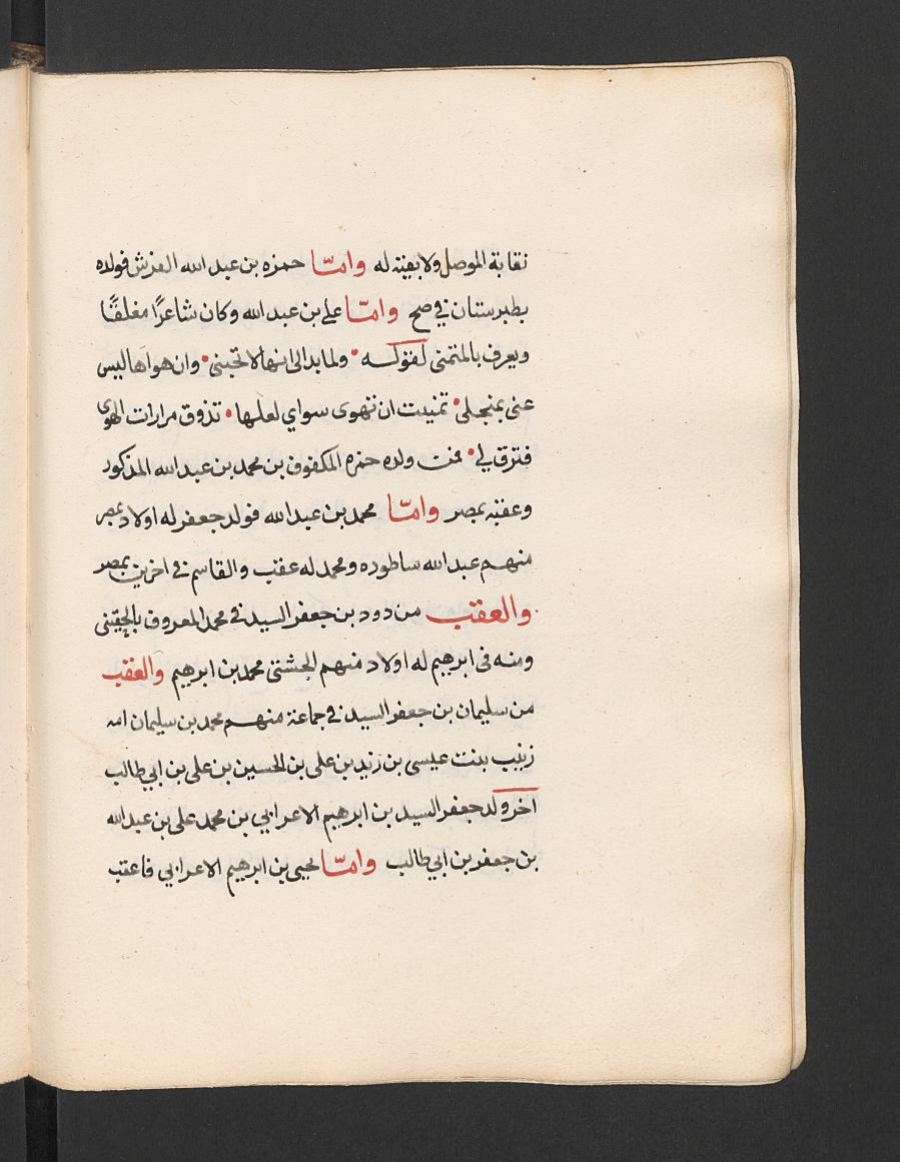 نقابة الموصل ولا بقية له وامّا حمزه بن عبد الله القرش فولده
بطبرستان في صح وامّا على بن عبد الله وكان شاعرًا مغلقًا
ويعرف بالمتمنى لقوله ولما بدا الى انها لا تحبنى وان هواها ليس
عنى بمنجلى تمنيت ان تهوى سواي لعلها تذوق مرارات الهوى
فترق لي فمن ولده حمزه المكفوف بن محمد بن عبد الله المذكور
وعقبه بمصر وامّا محمد بن عبد الله فولد جعفر له اولاد بمصر
منهم عبد الله ساطوره ومحمد له عقب والقاسم في اخرين بمصر
والعقب من دود بن جعفر السيد في محمد المعروف
ومنه فى ابرهيم له اولاد منهم محمد بن ابرهيم والعقب
من سليمان بن جعفر السيد في جماعة منهم محمد بن سليمان امه
زينب بنت عيسى بن زيد بن على بن الحسين بن على بن ابي طالب
اخر ولد جعفر السيد بن ابرهيم الاعرابي بن محمد على بن عبد الله
بن جعفر بن ابي طالب وامّا يحيى بن ابرهيم الاعرابي فاعقب